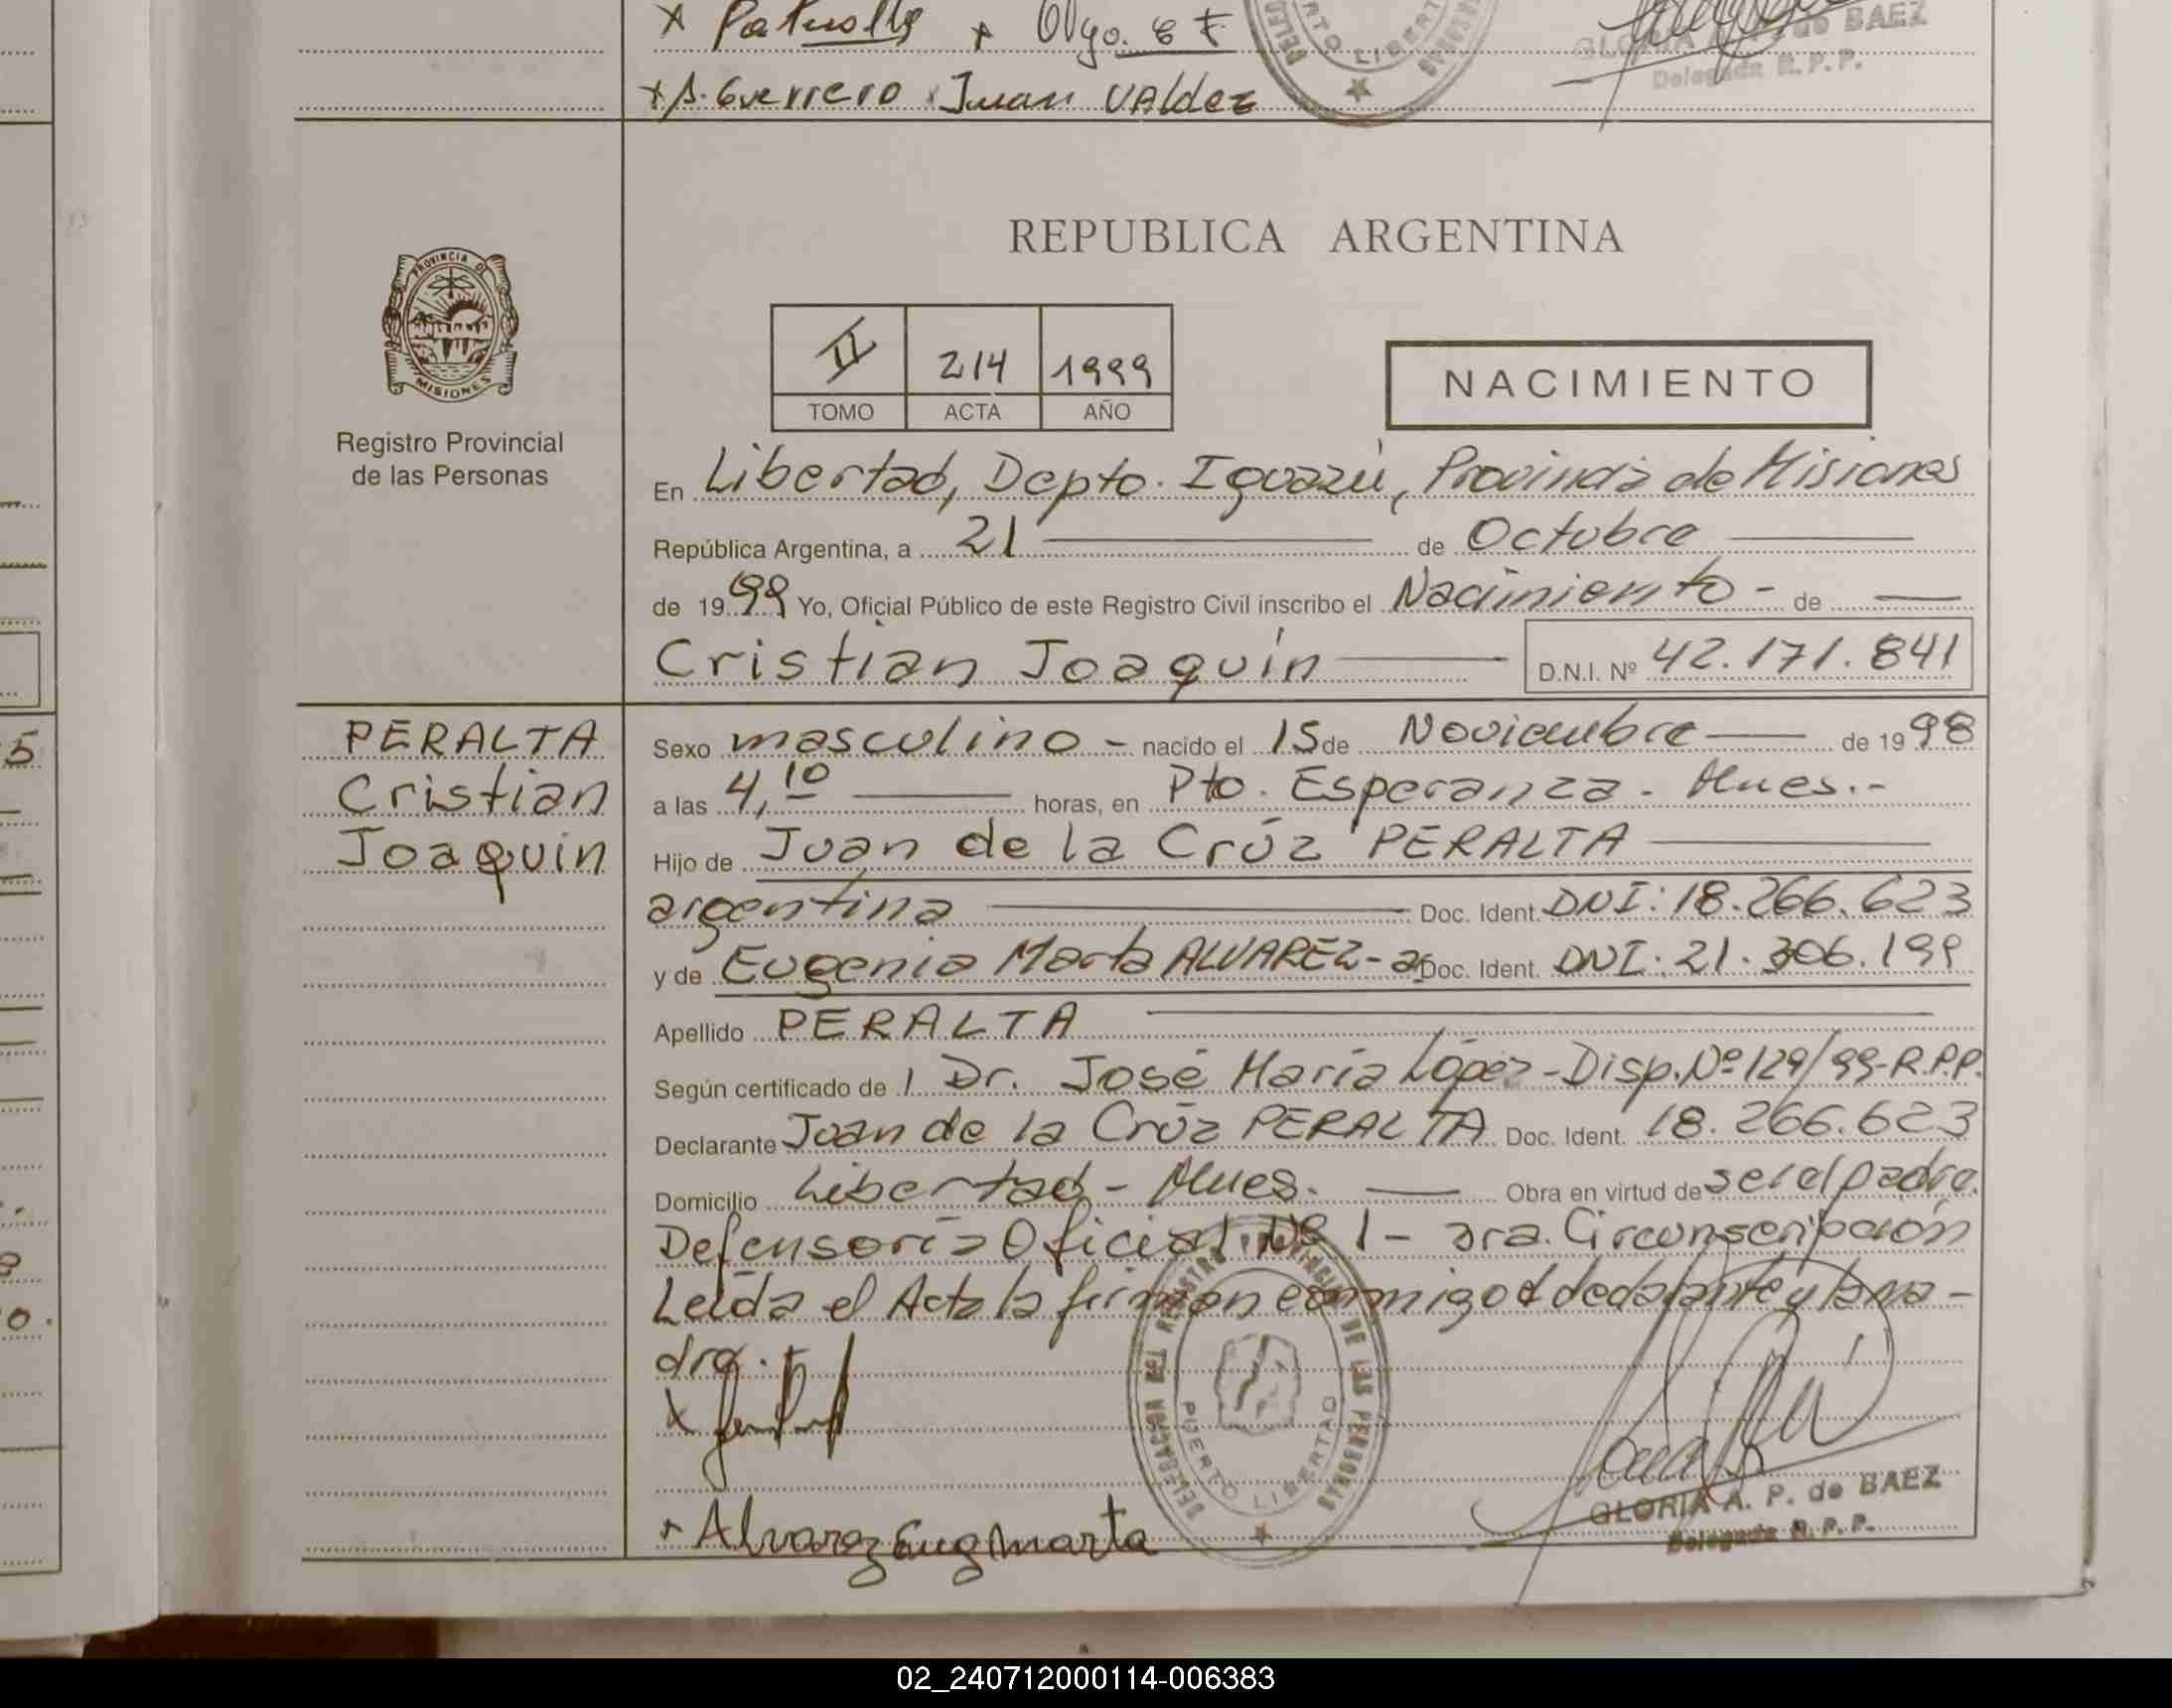 x Olga. E F
x A. Guerrero x Juan Valdez
GLORIA A. P. de BAEZ
Delegada R. P. P.
PROVINCIA DE MISIONES
Registro Provincial
de las Personas
REPUBLICA ARGENTINA
II 214 1999
TOMO ACTA AÑO
NACIMIENTO
En Libertad, Depto. Iguazú, Provincia de Misiones
República Argentina, a 21 de Octubre
de 1999 Yo, Oficial Público de este Registro Civil inscribo el Nacimiento - de
Cristian Joaquín D.N.I. Nº 42.171.841
PERALTA
Cristian
Joaquín
Sexo masculino - nacido el 15 de Noviembre de 1998
a las 4,10 horas, en Pto. Esperanza - Mnes.-
Hijo de Juan de la Crúz PERALTA
argentina Doc. Ident. DNI: 18.266.623
y de Eugenia Marta ALVAREZ - a Doc. Ident. DNI: 21.306.199
Apellido PERALTA
Según certificado de l Dr. José María López - Disp. Nº 129/99 - R.P.P.
Declarante Juan de la Crúz PERALTA Doc. Ident. 18.266.623
Domicilio Libertad - Mnes. Obra en virtud de ser el padre.
Defensoría Oficial Nº 1 - 3ra. Circunscripción
Leída el Acta la firman conmigo el declarante y la ma-
dre.
DELEGACION DEL REGISTRO PROVINCIAL DE LAS PERSONAS
PUERTO LIBERTAD
x Alvarez Eug Marta
GLORIA A. P. de BAEZ
Delegada R. P. P.
02_240712000114-006383